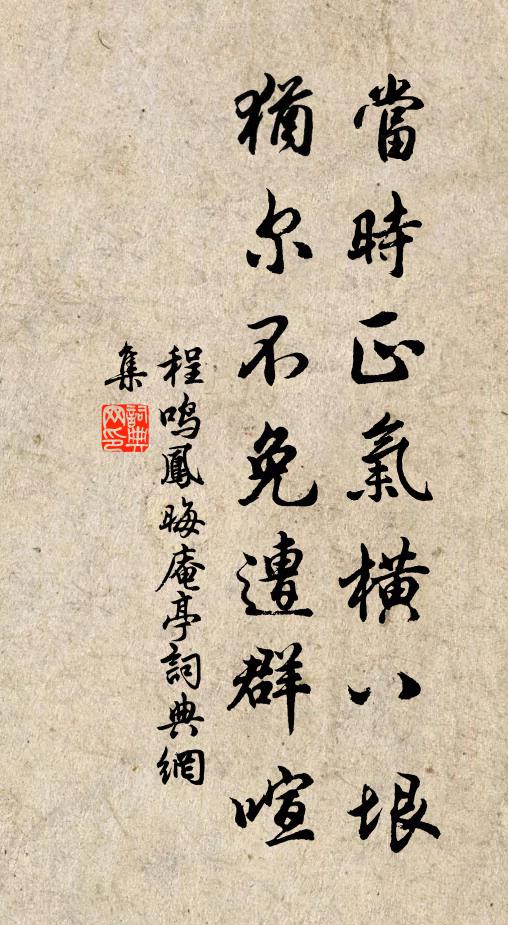 當時正氣橫八垠
猶尔不免遭群喧
程鳴鳳晦庵亭詞典網
集
詞典网印